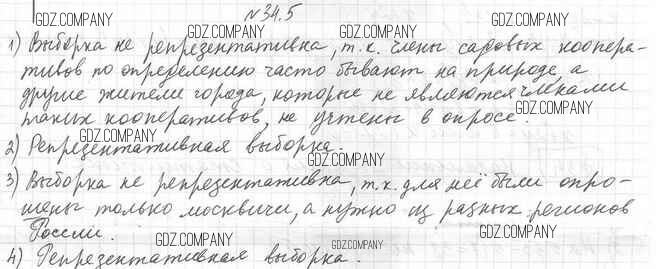 №34.5
GDZ.COMPANY GDZ.COMPANY GDZ.COMPANY
1) Выборка не репрезентативна, т.к. члены садовых коопера-
тивов по определению часто бывают на природе, а
GDZ.COMPANY GDZ.COMPANY
другие жители города, которые не являются членами
таких кооперативов, не учтены в опросе.
GDZ.COMPANY GDZ.COMPANY
2) Репрезентативная выборка.
GDZ.COMPANY
3) Выборка не репрезентативна, т.к. для неё были опро-
шены только москвичи, а нужно из разных регионов
России.
GDZ.COMPANY GDZ.COMPANY GDZ.COMPANY
4) Репрезентативная выборка.